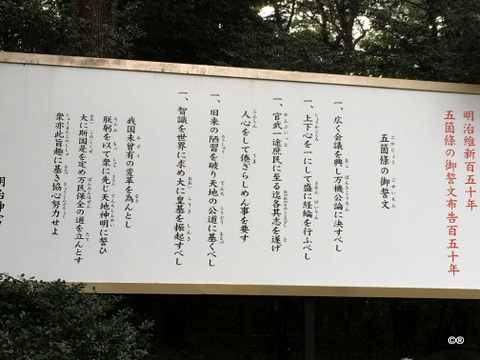 明治維新百五十年
五箇條の御誓文布告百五十年
五箇條の御誓文
一、広く会議を興し万機公論に決すべし
一、上下心を一にして盛に経綸を行ふべし
一、官武一途庶民に至る迄各其志を遂げ
人心をして倦ざらしめん事を要す
一、旧来の陋習を破り天地の公道に基くべし
一、智識を世界に求め大に皇基を振起すべし
我国未曽有の変革を為んとし
朕躬を以て衆に先じ天地神明に誓ひ
大に斯国是を定め万民保全の道を立んとす
衆亦此旨趣に基き協心努力せよ
明治
©®